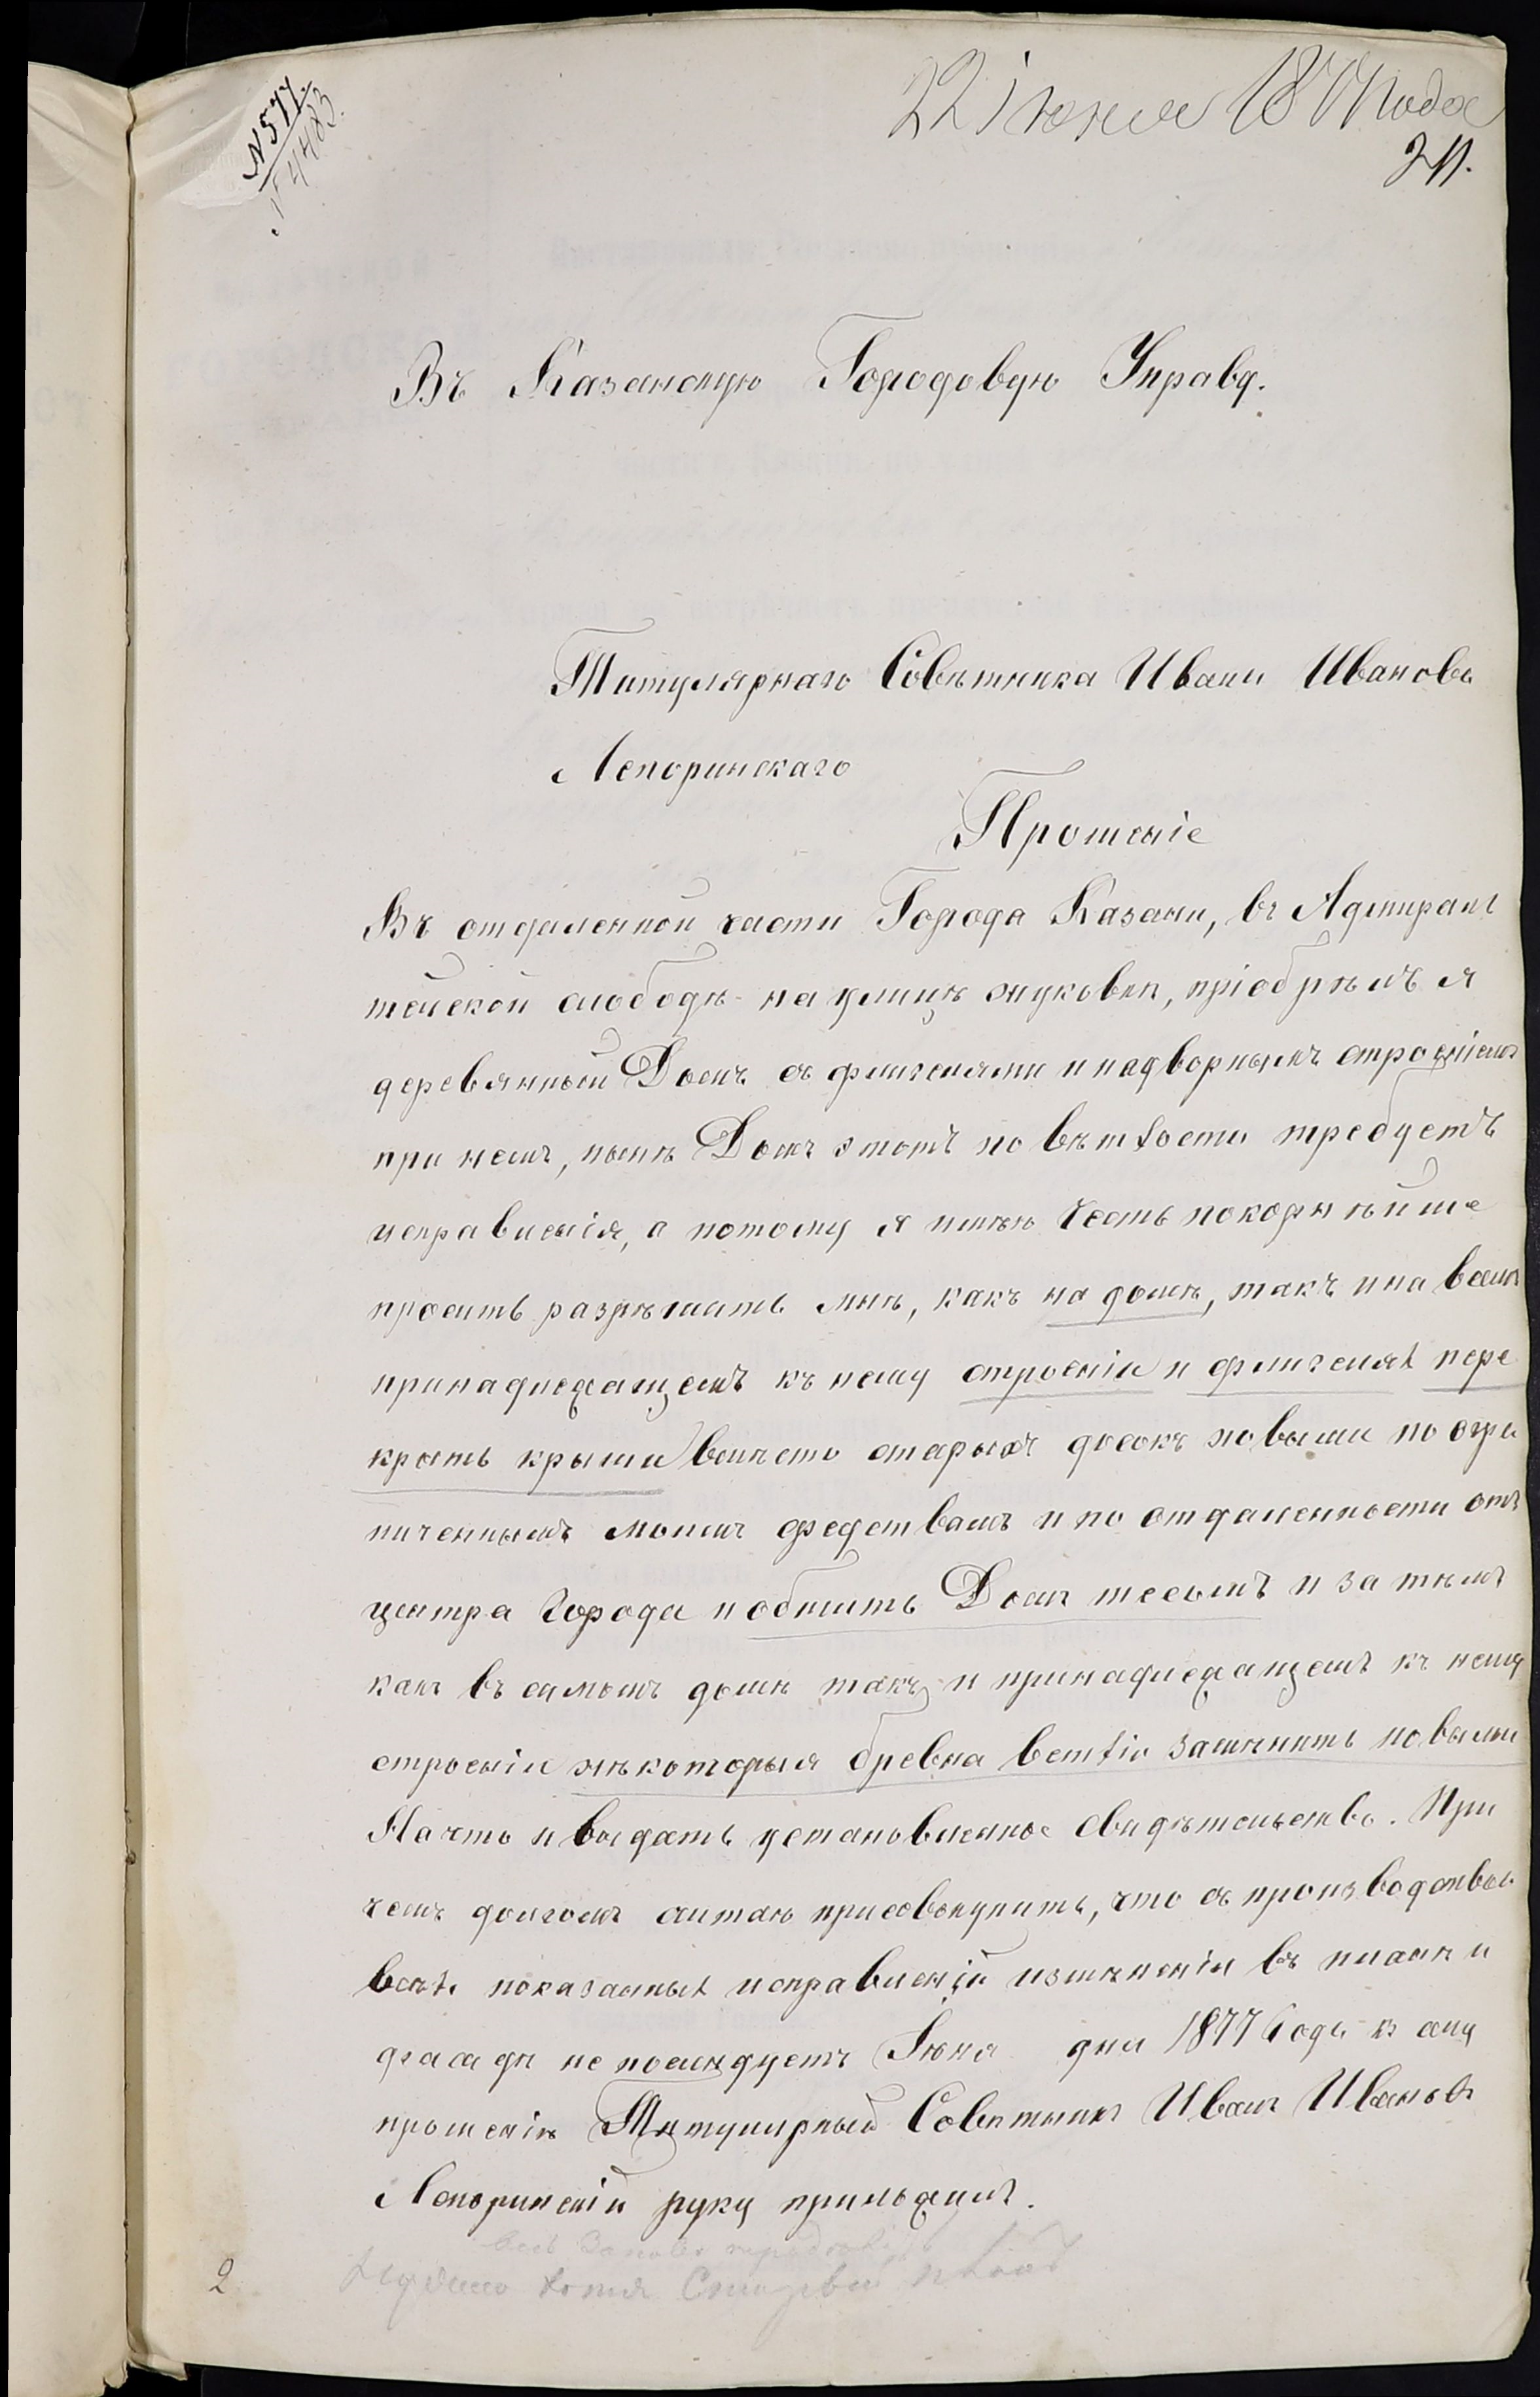 22 іюня 1877 года
№ 577.
№ 4483.
Въ Казанскую Городовую Управу.
Титулярнаго Совѣтника Ивана Иванова
Лепоринскаго
Прошеніе
Въ отдаленной части Города Казани, въ Адмирал
тейской слободѣ на улицѣ, пріобрѣлъ я
деревянный Домъ съ флигелями и надворнымъ строеніемъ
при немъ, нынѣ Домъ этотъ по вѣтхости требуетъ
исправленія, а потому я имѣю Честь покорнѣйше
просить разрѣшить мнѣ, какъ на домѣ, такъ и на всемъ
принадлежащемъ къ нему строеніи и флигелях пере
крыть крыши вмѣсто старыхъ досокъ новыми по огра
ниченнымъ моимъ средствамъ и по отдаленности отъ
центра Города и обшить Домъ тесомъ и за тѣмъ
какъ въ самомъ домѣ такъ и принадлежащемъ къ нему
строеніи нѣкоторыя бревна ветхіе замѣнить новыми
На что и выдать установленное Свидѣтельство. При
чемъ долгомъ считаю присовокупить, что съ производствомъ
всѣхъ показанных исправленій измѣненіи въ планѣ и
фасадѣ не послѣдуетъ Іюня дня 1877 Года къ сему
прошенію Титулярный Совѣтникъ Иванъ Ивановъ
Лепоринскій руку приложилъ.
2